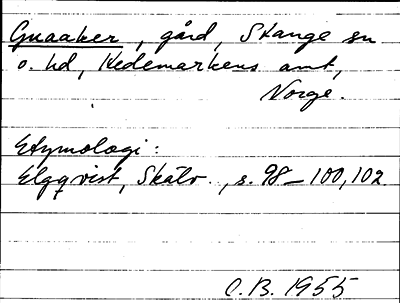 Gnaaker, gård, Stange sn
o. hd, Hedemarkens amt,
Norge.
Etymologi:
Elgqvist, Skälv., s. 98–100, 102
C.B. 1955